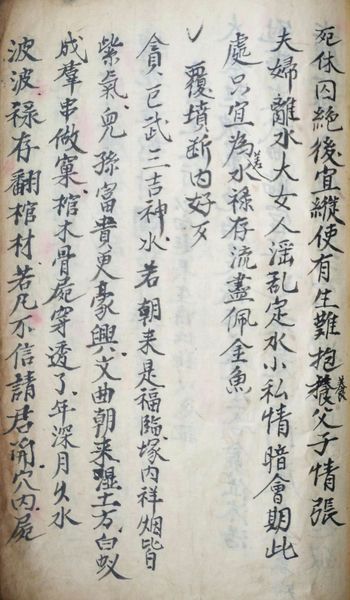 死休囚絕後宜縱使有生難抱養父子情張
夫婦離水大女人淫乱定水小私情暗會期此
處只宜為送水祿存流盡佩金魚
覆墳断内好歹
貪巨武三吉神水若朝来是福臨塚内祥烟皆
紫氣兒孫富貴更豪興文曲朝来湿土方白蚁
成羣串做窠棺木骨屍穿透了年深月久水
波波禄存翻棺材若凡不信請君開穴内屍